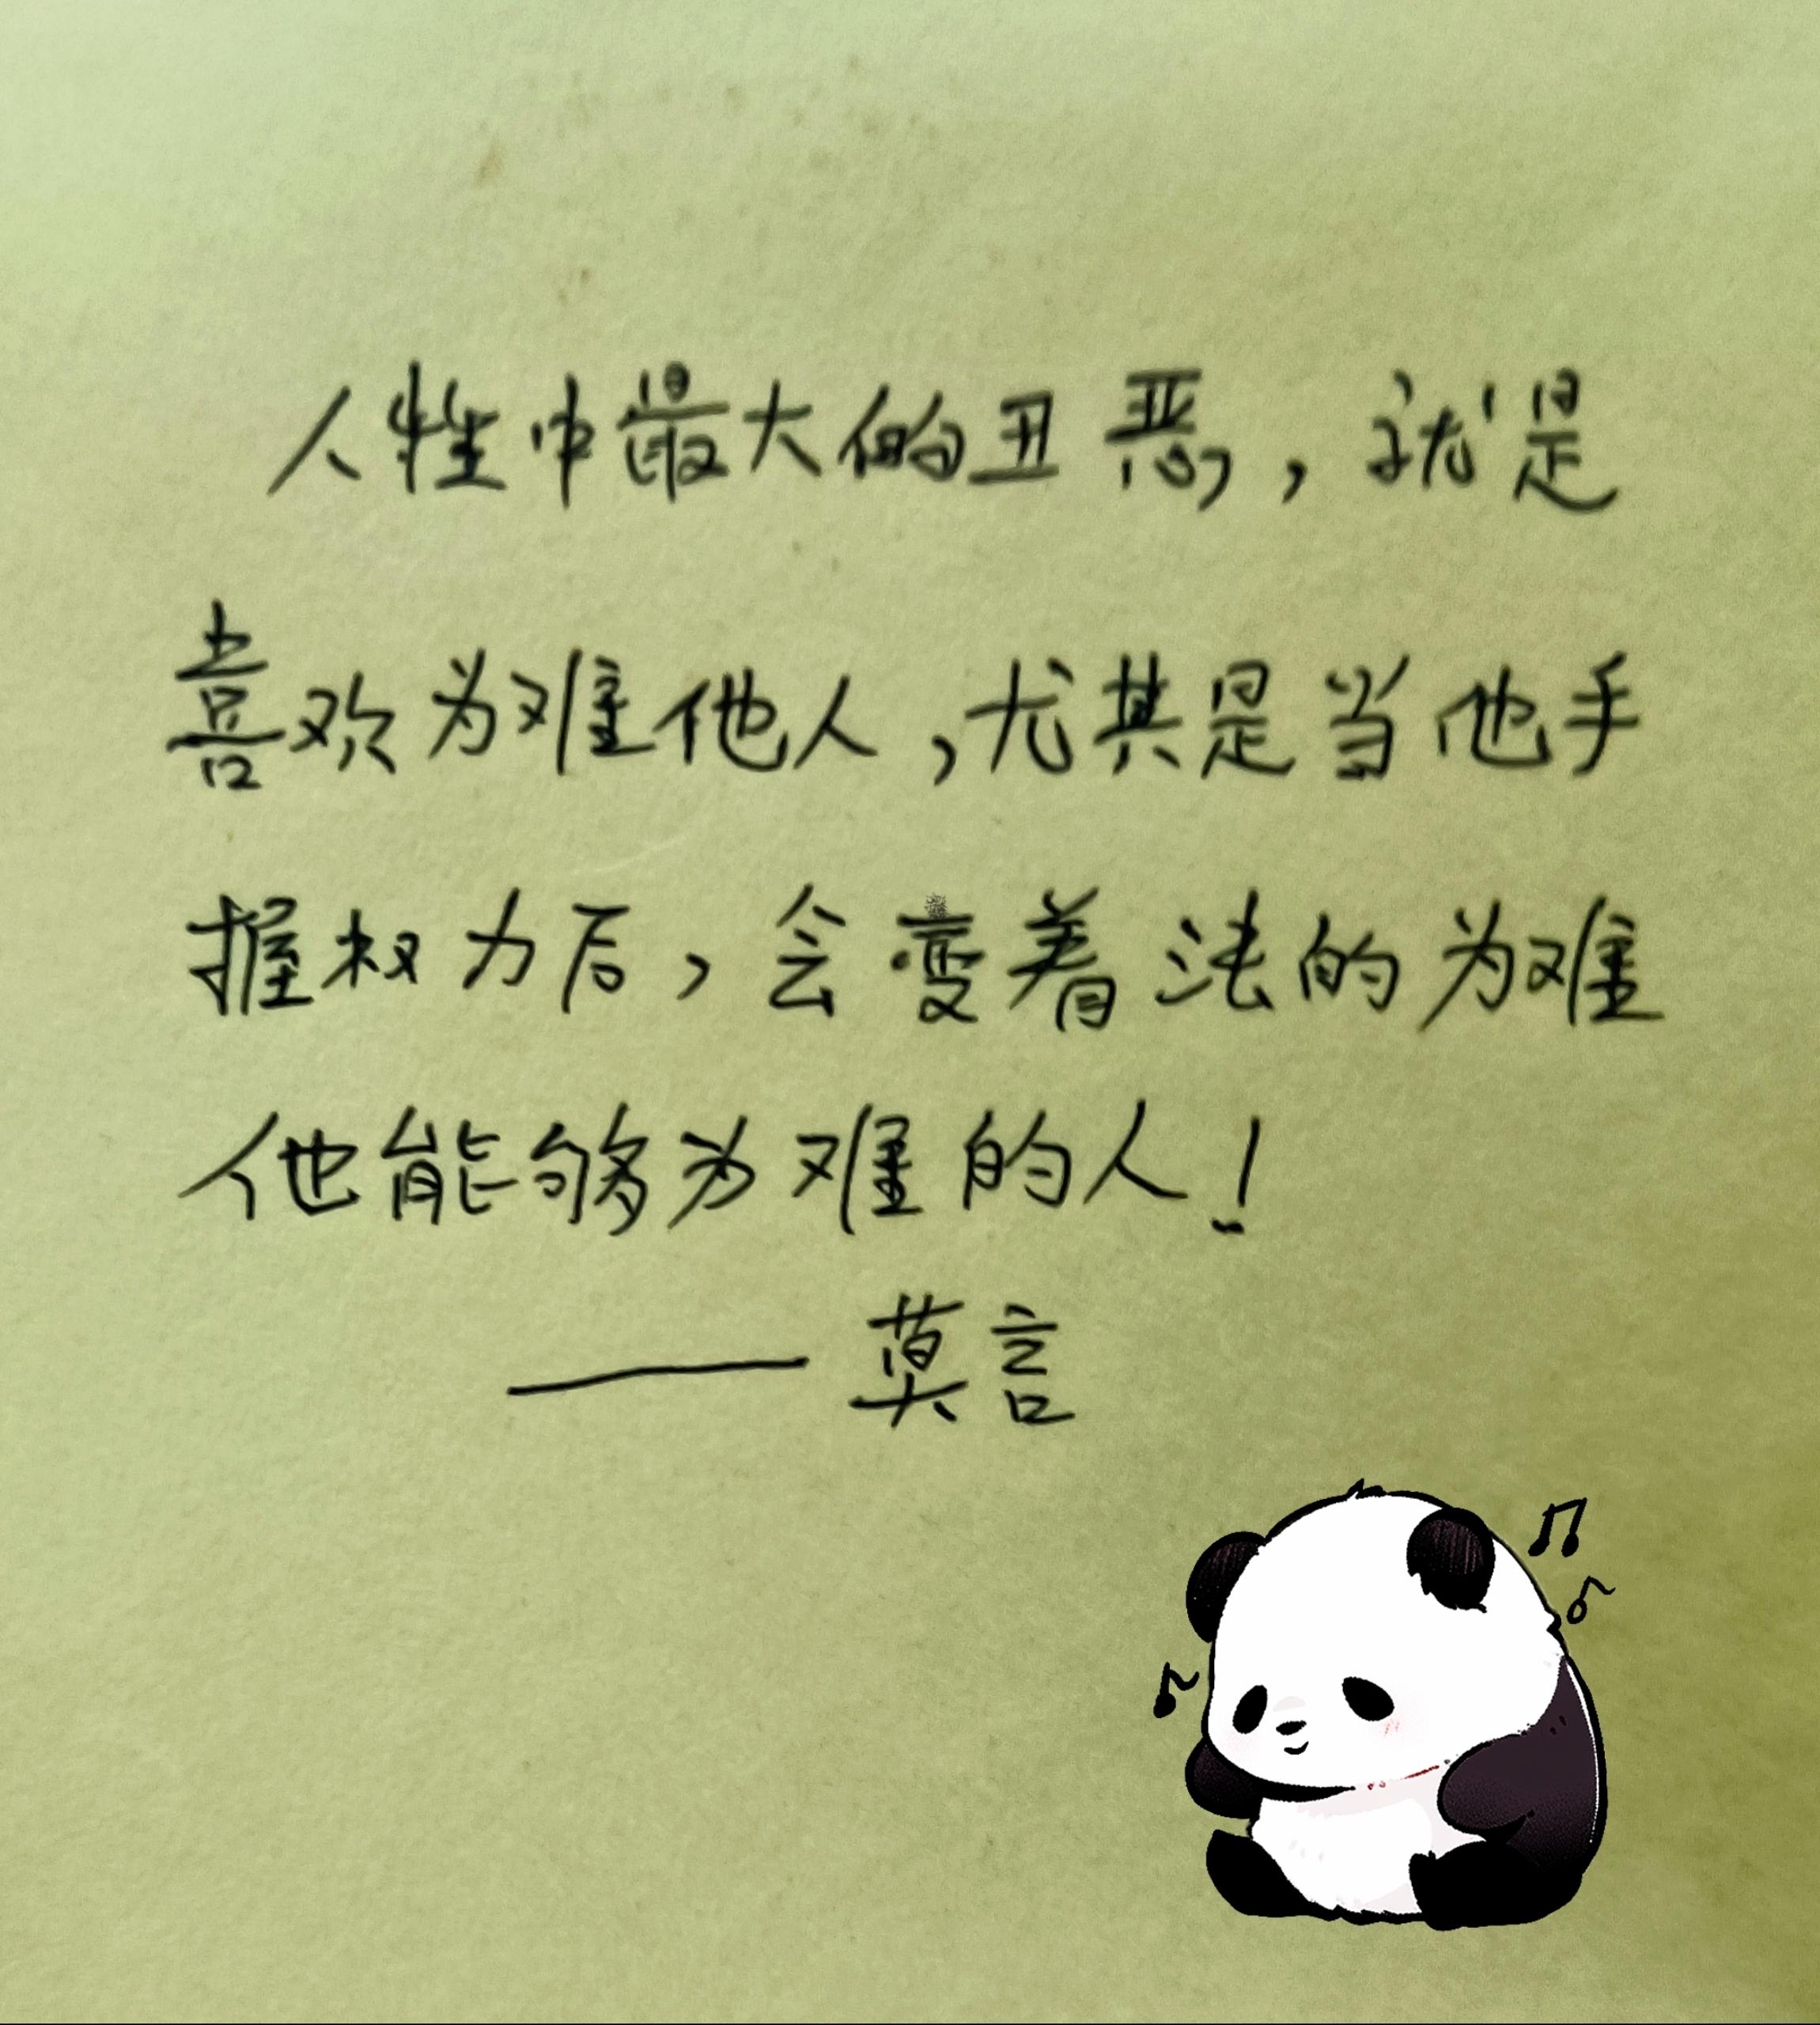 人性中最大的丑恶，就是
喜欢为难他人，尤其是当他手
握权力后，会变着法的为难
他能够为难的人！
——莫言